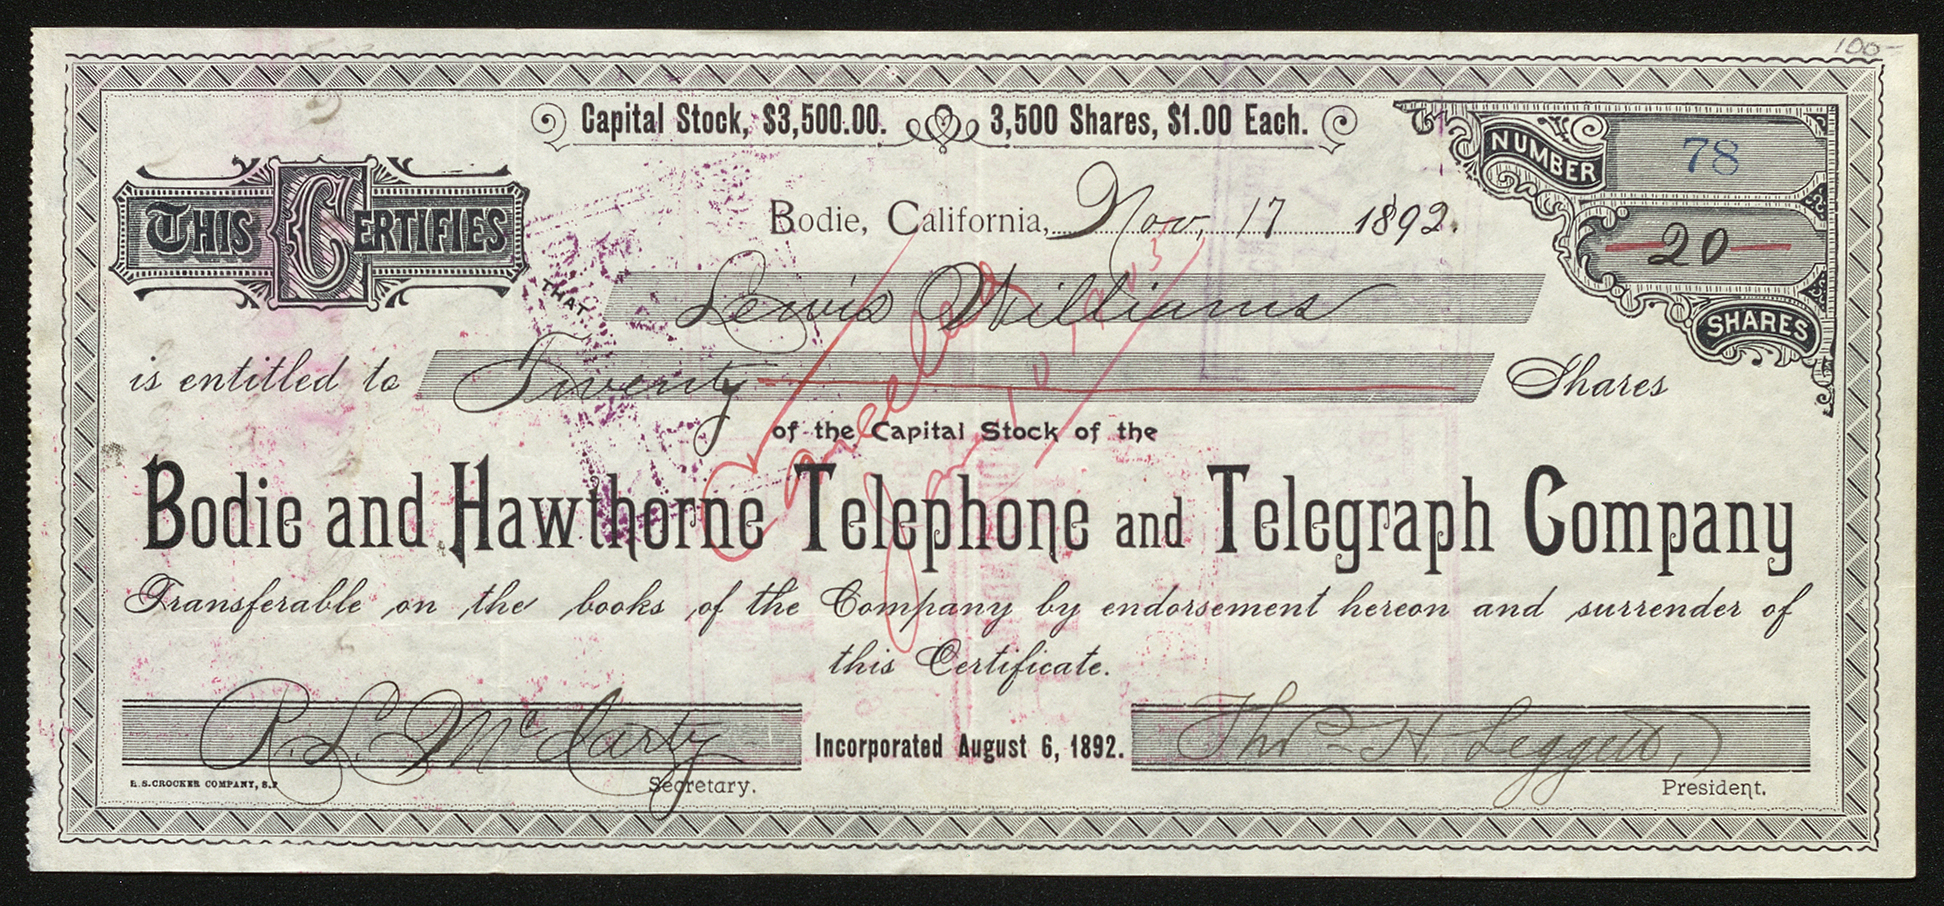 100-
Capital Stock, $3,500.00. 3,500 Shares, $1.00 Each.
NUMBER 78
THIS CERTIFIES
Bodie, California, Nov. 17 1892.
20
SHARES
THAT Lewis Williams
is entitled to Twenty Shares
Cancelled
of the Capital Stock of the
Bodie and Hawthorne Telephone and Telegraph Company
Transferable on the books of the Company by endorsement hereon and surrender of
this Certificate.
P. L. McCarty Incorporated August 6, 1892. Thos. H. Leggett,
H.S. CROCKER COMPANY, S.F. Secretary. President.